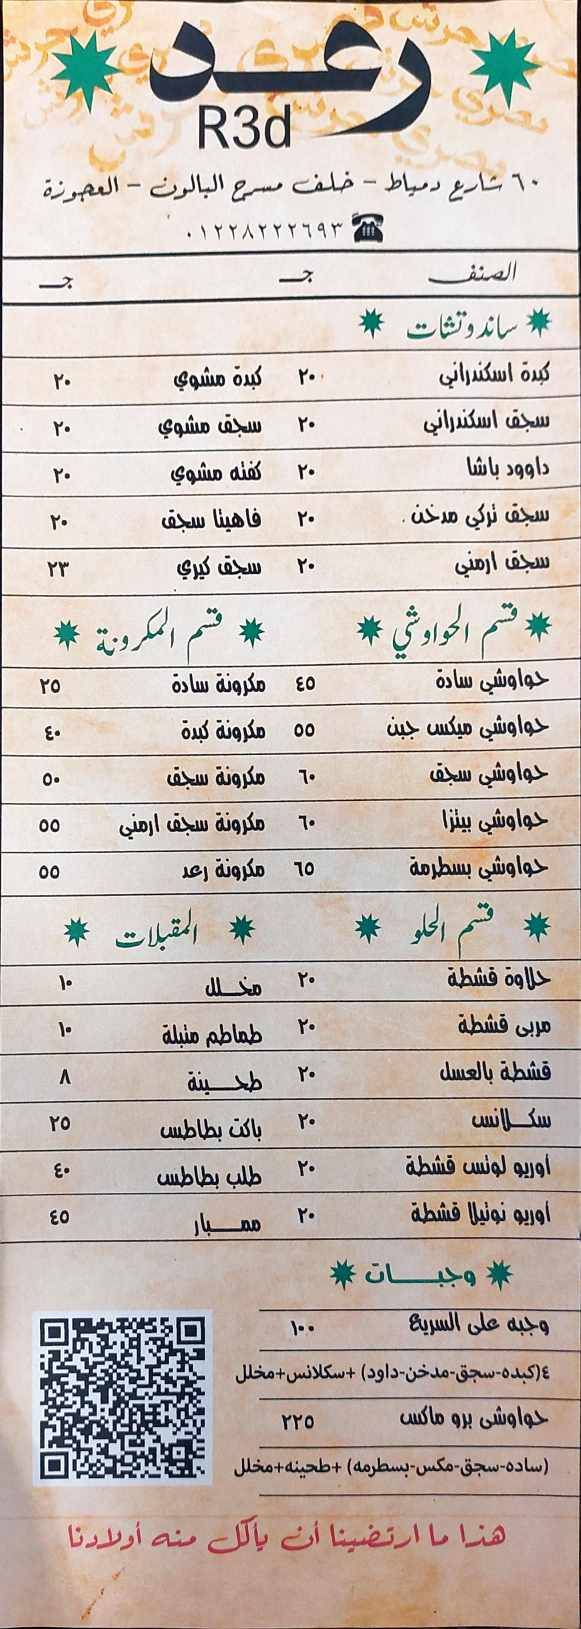 رعد
R3d
٦٠ شارع دمياط - خلف مسرح البالون - العجوزة
٠١٢٢٨٢٢٢٦٩٣
الصنف جـ جـ
ساندوتشات
كبدة اسكندراني ٢٠ كبدة مشوي ٢٠
سجق اسكندراني ٢٠ سجق مشوي ٢٠
داوود باشا ٢٠ كفته مشوي ٢٠
سجق تركي مدخن ٢٠ فاهيتا سجق ٢٠
سجق ارمني ٢٠ سجق كيري ٢٣
قسم الحواوشي قسم المكرونة
حواوشي سادة ٤٥ مكرونة سادة ٢٥
حواوشي ميكس جبن ٥٥ مكرونة كبدة ٤٠
حواوشي سجق ٦٠ مكرونة سجق ٥٠
حواوشي بيتزا ٦٠ مكرونة سجق ارمني ٥٥
حواوشي بسطرمة ٦٥ مكرونة رعد ٥٥
قسم الحلو المقبلات
حلاوة قشطة ٢٠ مخلل ١٠
مربى قشطة ٢٠ طماطم متبلة ١٠
قشطة بالعسل ٢٠ طحينة ٨
سكلانس ٢٠ باكت بطاطس ٢٥
أوريو لوتس قشطة ٢٠ طلب بطاطس ٤٠
أوريو نوتيلا قشطة ٢٠ ممبار ٤٥
وجبات
وجبه على السريع ١٠٠
٤(كبده-سجق-مدخن-داود) +سكلانس+مخلل
حواوشى برو ماكس ٢٢٥
(ساده-سجق-مكس-بسطرمه) +طحينه+مخلل
هذا ما ارتضينا أن يأكل منه أولادنا